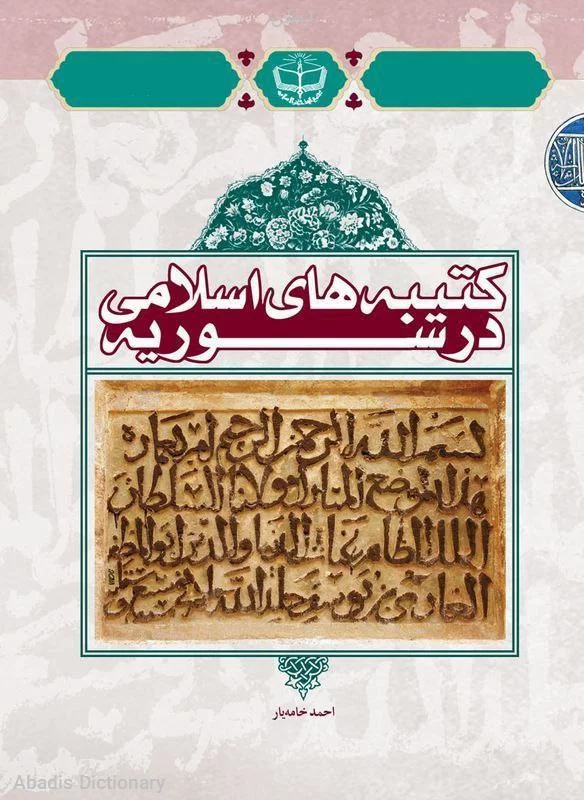 کتیبه های اسلامی
در سوریه
بسم الله الرحمن الرحيم امر بعمارة
هذا الموضع المبارك مولانا السلطان
الملك الظاهر غياث الدنيا والدين ابو المظفر
الغازي بن يوسف خلد الله ملكه
احمد خامه‌یار
Abadis Dictionary